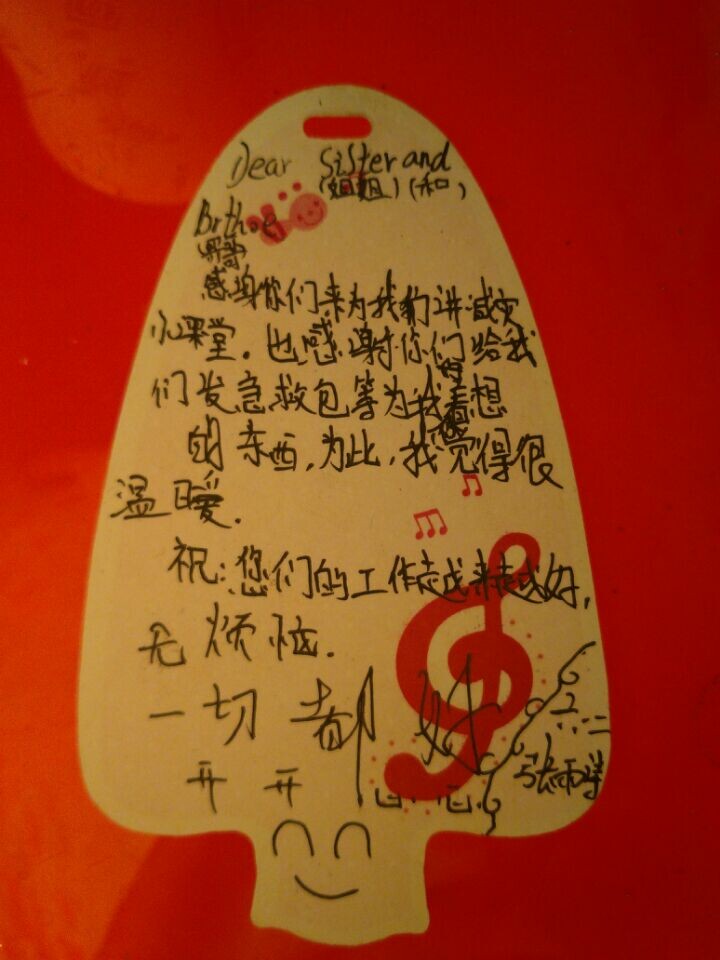 Dear Sister and
(姐姐) (和)
Brthoe
哥哥
感谢你们来为我们讲减灾
小课堂.也感谢你们给我
们发急救包等为我着想
的东西,为此,我觉得很
温暖.
祝:您们的工作越来越好,
无烦恼.
一切都好
开开心心.
六.二